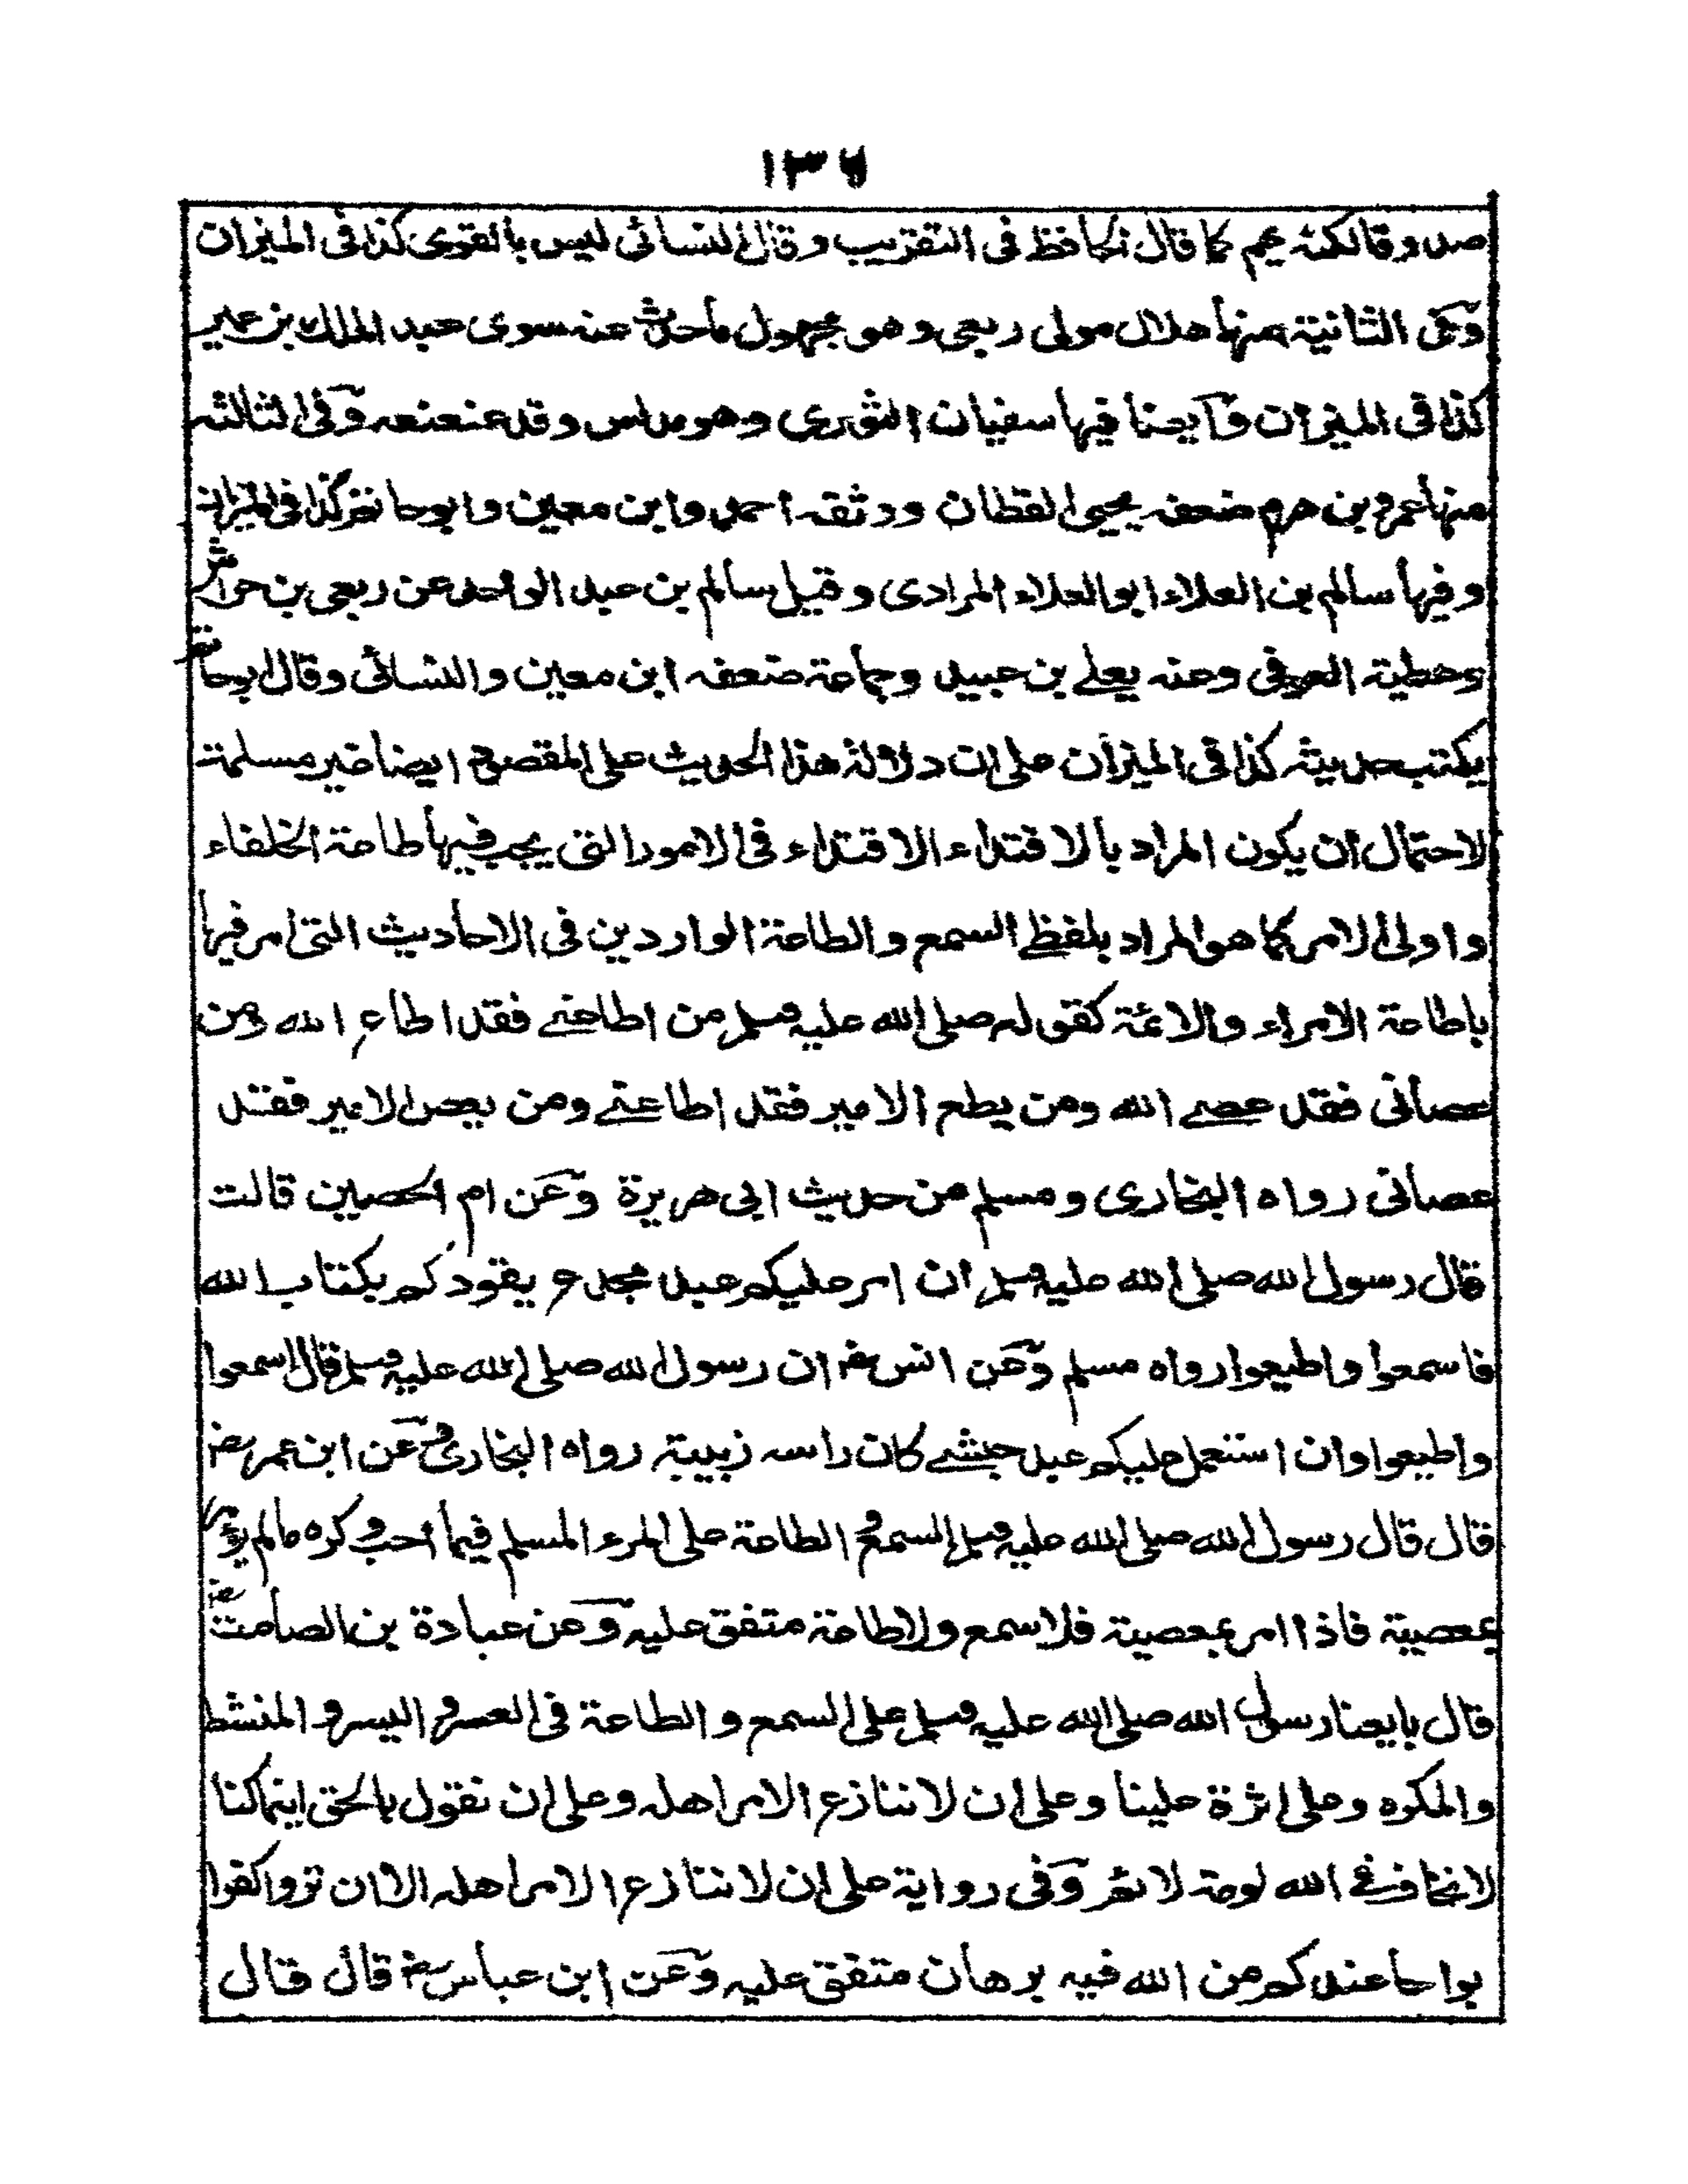 ١٣٦
صدوقا لكنه يهم كما قال الحافظ فى التقريب وقال النسائى ليس بالقوى كذا فى الميزان
وفى الثانية منها هلال مولى ربعى وهو مجهول ما حدث عنه سوى عبد الملك بن عمير
كذا فى الميزان وأيضا فيها سفيان الثورى وهو مدلس وقد عنعنه وفى الثالثة
منها عمرو بن هرم ضعفه يحيى القطان ووثقه احمد وابن معين وابو حاتم كذا فى الميزان
وفيها سالم بن العلاء ابو العلاء المرادى وقيل سالم بن عبد الواحد عن ربعى بن حراش
وعطية العوفى وعنه يعلے بن عبيد وجماعة ضعفه ابن معين والنسائى وقال ابو حاتم
يكتب حديثه كذا فى الميزان على ان دلالة هذا الحديث على المقصود ايضا غير مسلمة
لاحتمال ان يكون المراد بالاقتداء الاقتداء فى الامور التى يجب فيها طاعة الخلفاء
واولى الامر كما هو المراد بلفظ السمع والطاعة الواردين فى الاحاديث التى امر فيها
باطاعة الامراء والائمة كقوله صلى الله عليه وسلم من اطاعنے فقد اطاع الله ومن
عصانى فقد عصے الله ومن يطع الامير فقد اطاعنے ومن يعص الامير فقد
عصانى رواه البخارى ومسلم من حديث ابى هريرة وعن ام الحصين قالت
قال رسول الله صلى الله عليه وسلم ان امر عليكم عبد مجدع يقودكم بكتاب الله
فاسمعوا واطيعوا رواه مسلم وعن انس رض ان رسول الله صلى الله عليه وسلم قال اسمعوا
واطيعوا وان استعمل عليكم عبد حبشے كان راسه زبيبة رواه البخارى وعن ابن عمر رض
قال قال رسول الله صلى الله عليه وسلم السمع و الطاعة على المرء المسلم فيما احب وكره مالم يؤمر
بمعصية فاذا امر بمعصية فلا سمع ولا طاعة متفق عليه وعن عبادة بن الصامت رض
قال بايعنا رسول الله صلى الله عليه وسلم على السمع والطاعة فى العسر و اليسر و المنشط
والمكره وعلى اثرة علينا وعلى ان لا ننازع الامر اهله وعلى ان نقول بالحق اينما كنا
لا نخاف فے الله لومة لائم وفى رواية على ان لا ننازع الامر اهله الا ان تروا كفرا
بواحا عندكم من الله فيه برهان متفق عليه وعن ابن عباس رض قال قال